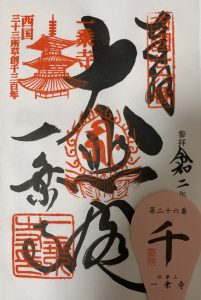 奉拝
参拝 令和二年
大悲殿
一乗寺
一乗寺
西国
三十三所草創千三百年
第二十六番
千
法華山
一乗寺